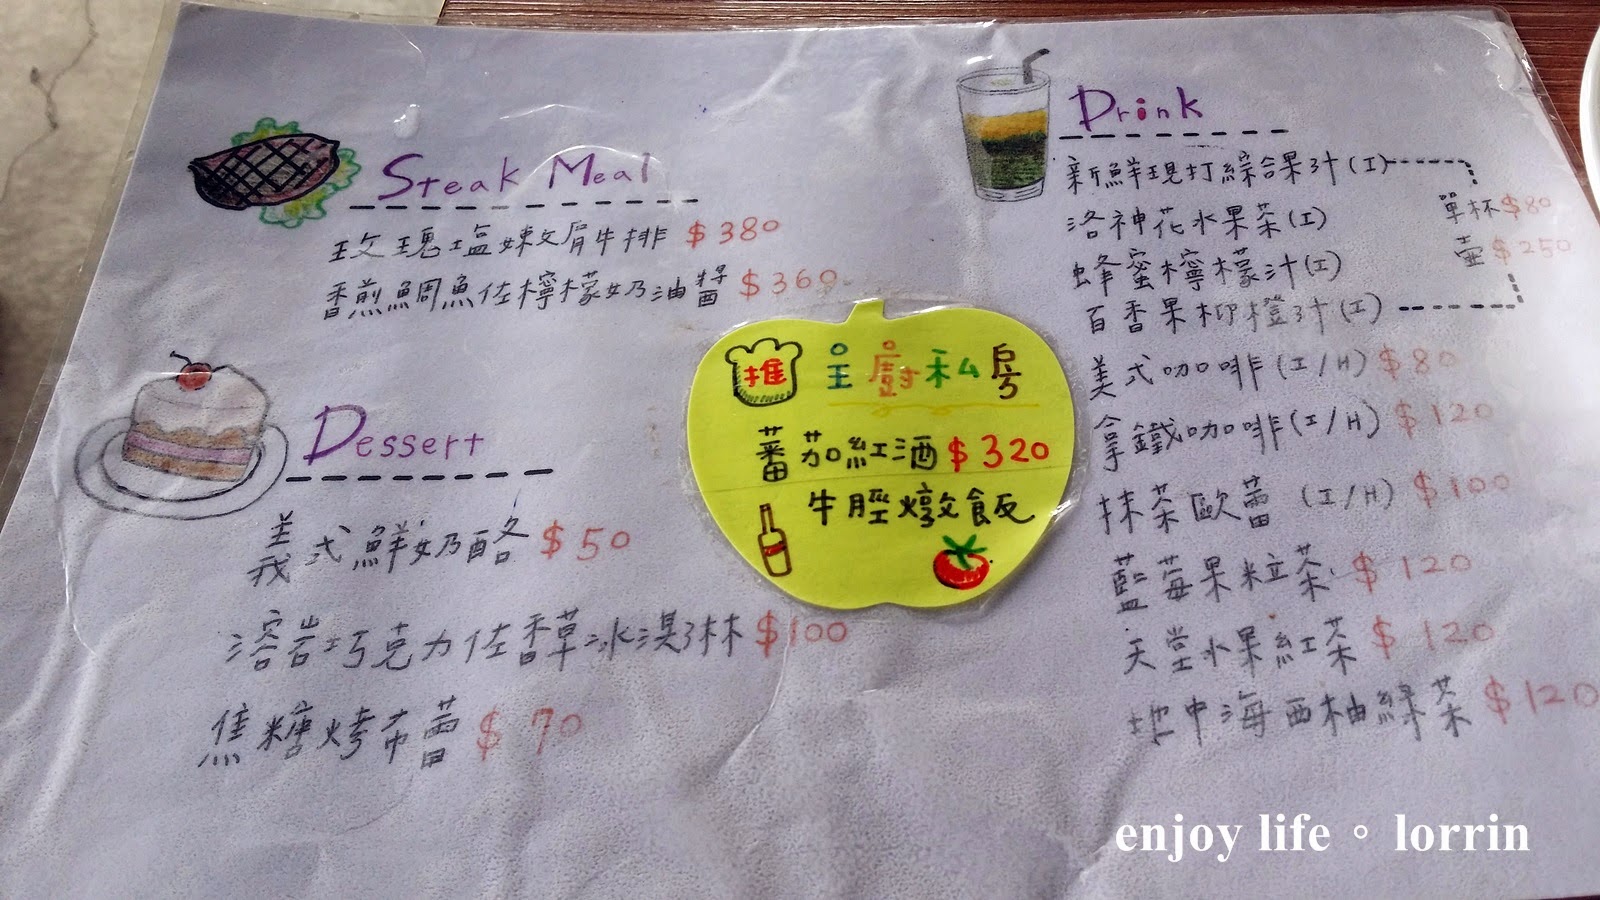 Steak Meal
玫瑰塩嫩肩牛排 $380
香煎鯛魚佐檸檬奶油醬 $360
Dessert
義式鮮奶酪 $50
溶岩巧克力佐香草冰淇淋 $100
焦糖烤布蕾 $70
推 主廚私房
蕃茄紅酒 $320
牛脛燉飯
Drink
新鮮現打綜合果汁(I)
洛神花水果茶(I)
蜂蜜檸檬汁(I)
百香果柳橙汁(I)
單杯 $80
壺 $250
美式咖啡(I/H) $80
拿鐵咖啡(I/H) $120
抹茶歐蕾 (I/H) $100
藍莓果粒茶 $120
天堂水果紅茶 $120
地中海西柚綠茶 $120
enjoy life。lorrin